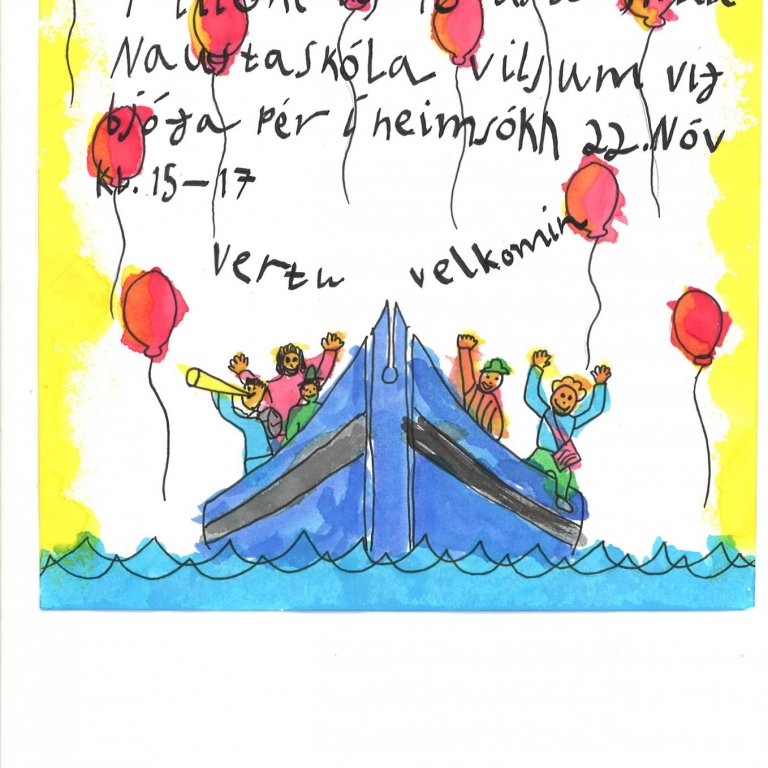 Naustaskóla viljum við
bjóða þér í heimsókn 22. Nóv
kl. 15-17
vertu velkomin